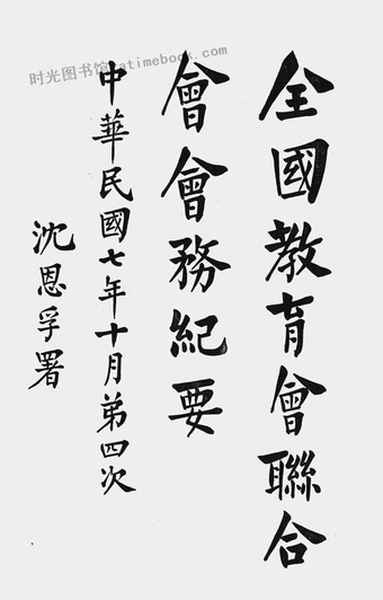 全國教育會聯合
會會務紀要
中華民國七年十月第四次
沈恩孚署
时光图书馆atimebook.com